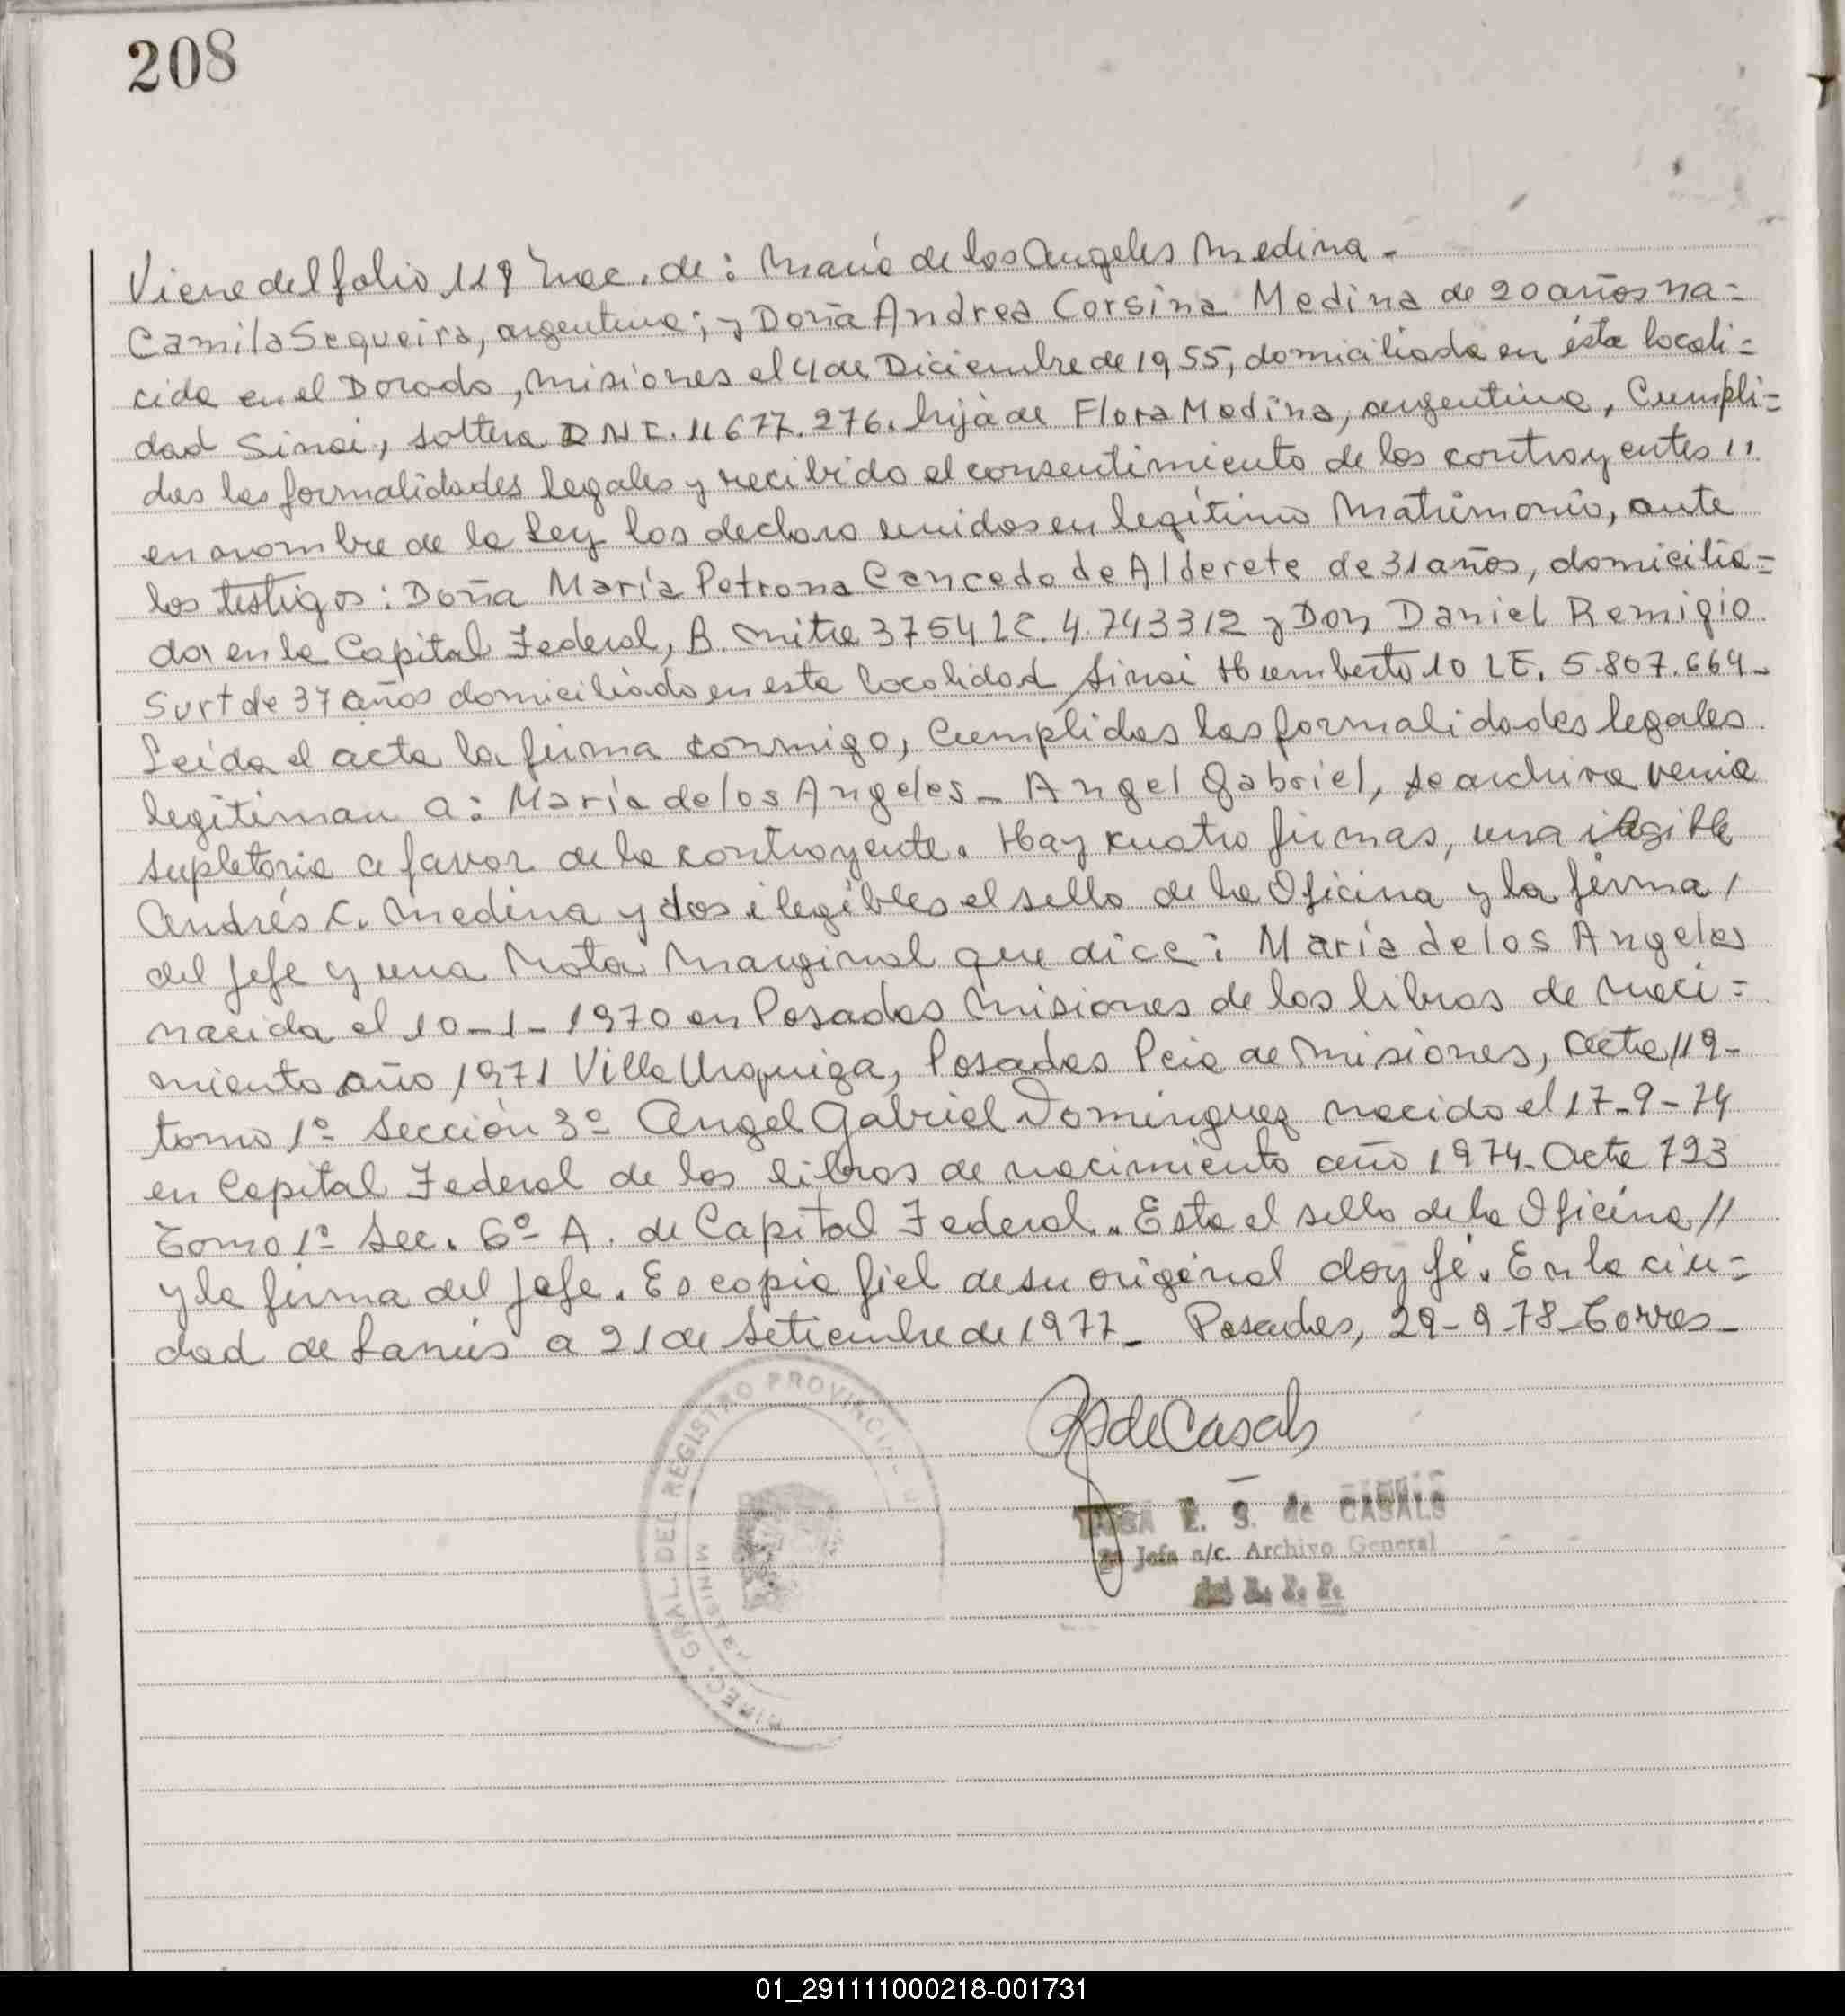 208
Viene del folio 119 Nac. de: María de los Angeles Medina.-
Camila Sequeira, argentina; y Doña Andrea Corsina Medina de 20 años na=
cida en el Dorado, Misiones el 4 de Diciembre de 1955, domiciliada en ésta locali=
dad Sinai, soltera DNI. 11677.276. hija de Flora Medina, argentina, Cumpli=
das las formalidades legales y recibido el consentimiento de los contrayentes //
en nombre de la Ley los declaro unidos en legítimo Matrimonio, ante
los testigos: Doña María Petrona Cancedo de Alderete de 31 años, domicilia=
da en la Capital Federal, B. Mitre 3754 LC. 4.743312 y Don Daniel Remigio
Surt de 37 años domiciliado en esta localidad Sinai Humberto 10 LE. 5.807.664-
Leída el acta la firma conmigo, Cumplidas las formalidades legales
legitiman a: María de los Angeles - Angel Gabriel, se archiva venia
supletoria a favor de la contrayente. Hay cuatro firmas, una ilegible
Andrés C. Medina y dos ilegibles el sello de la Oficina y la firma /
del Jefe y una Nota Marginal que dice: María de los Angeles
nacida el 10-1-1970 en Posadas Misiones de los libros de naci=
miento año 1971 Villa Urquiza, Posadas Pcia de Misiones, acta 119-
tomo 1º Sección 3º Angel Gabriel Dominguez nacido el 17-9-74
en Capital Federal de los libros de nacimiento año 1974. Acta 793
Tomo 1º Sec. 6º A. de Capital Federal.. Esta el sello de la Oficina //
y la firma del Jefe. Es copia fiel de su original doy fé. En la ciu=
dad de Lanús a 21 de Setiembre de 1977- Posadas, 29-9-78-Torres-
DIREC. GRAL. DEL REGISTRO PROVINCIAL
MINIS
deCasals
E. S. de CASALS
2ª Jefa a/c. Archivo General
del R. P. P.
01_291111000218-001731